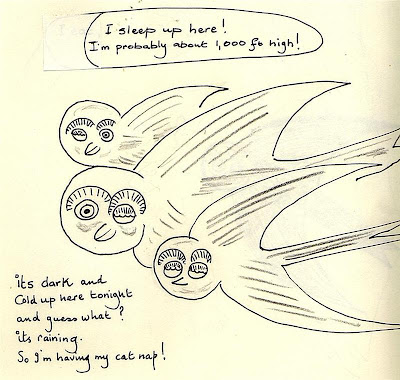 I sleep up here!
I'm probably about 1,000 ft high!
its dark and
Cold up here tonight
and guess what?
its raining.
So I'm having my cat nap!